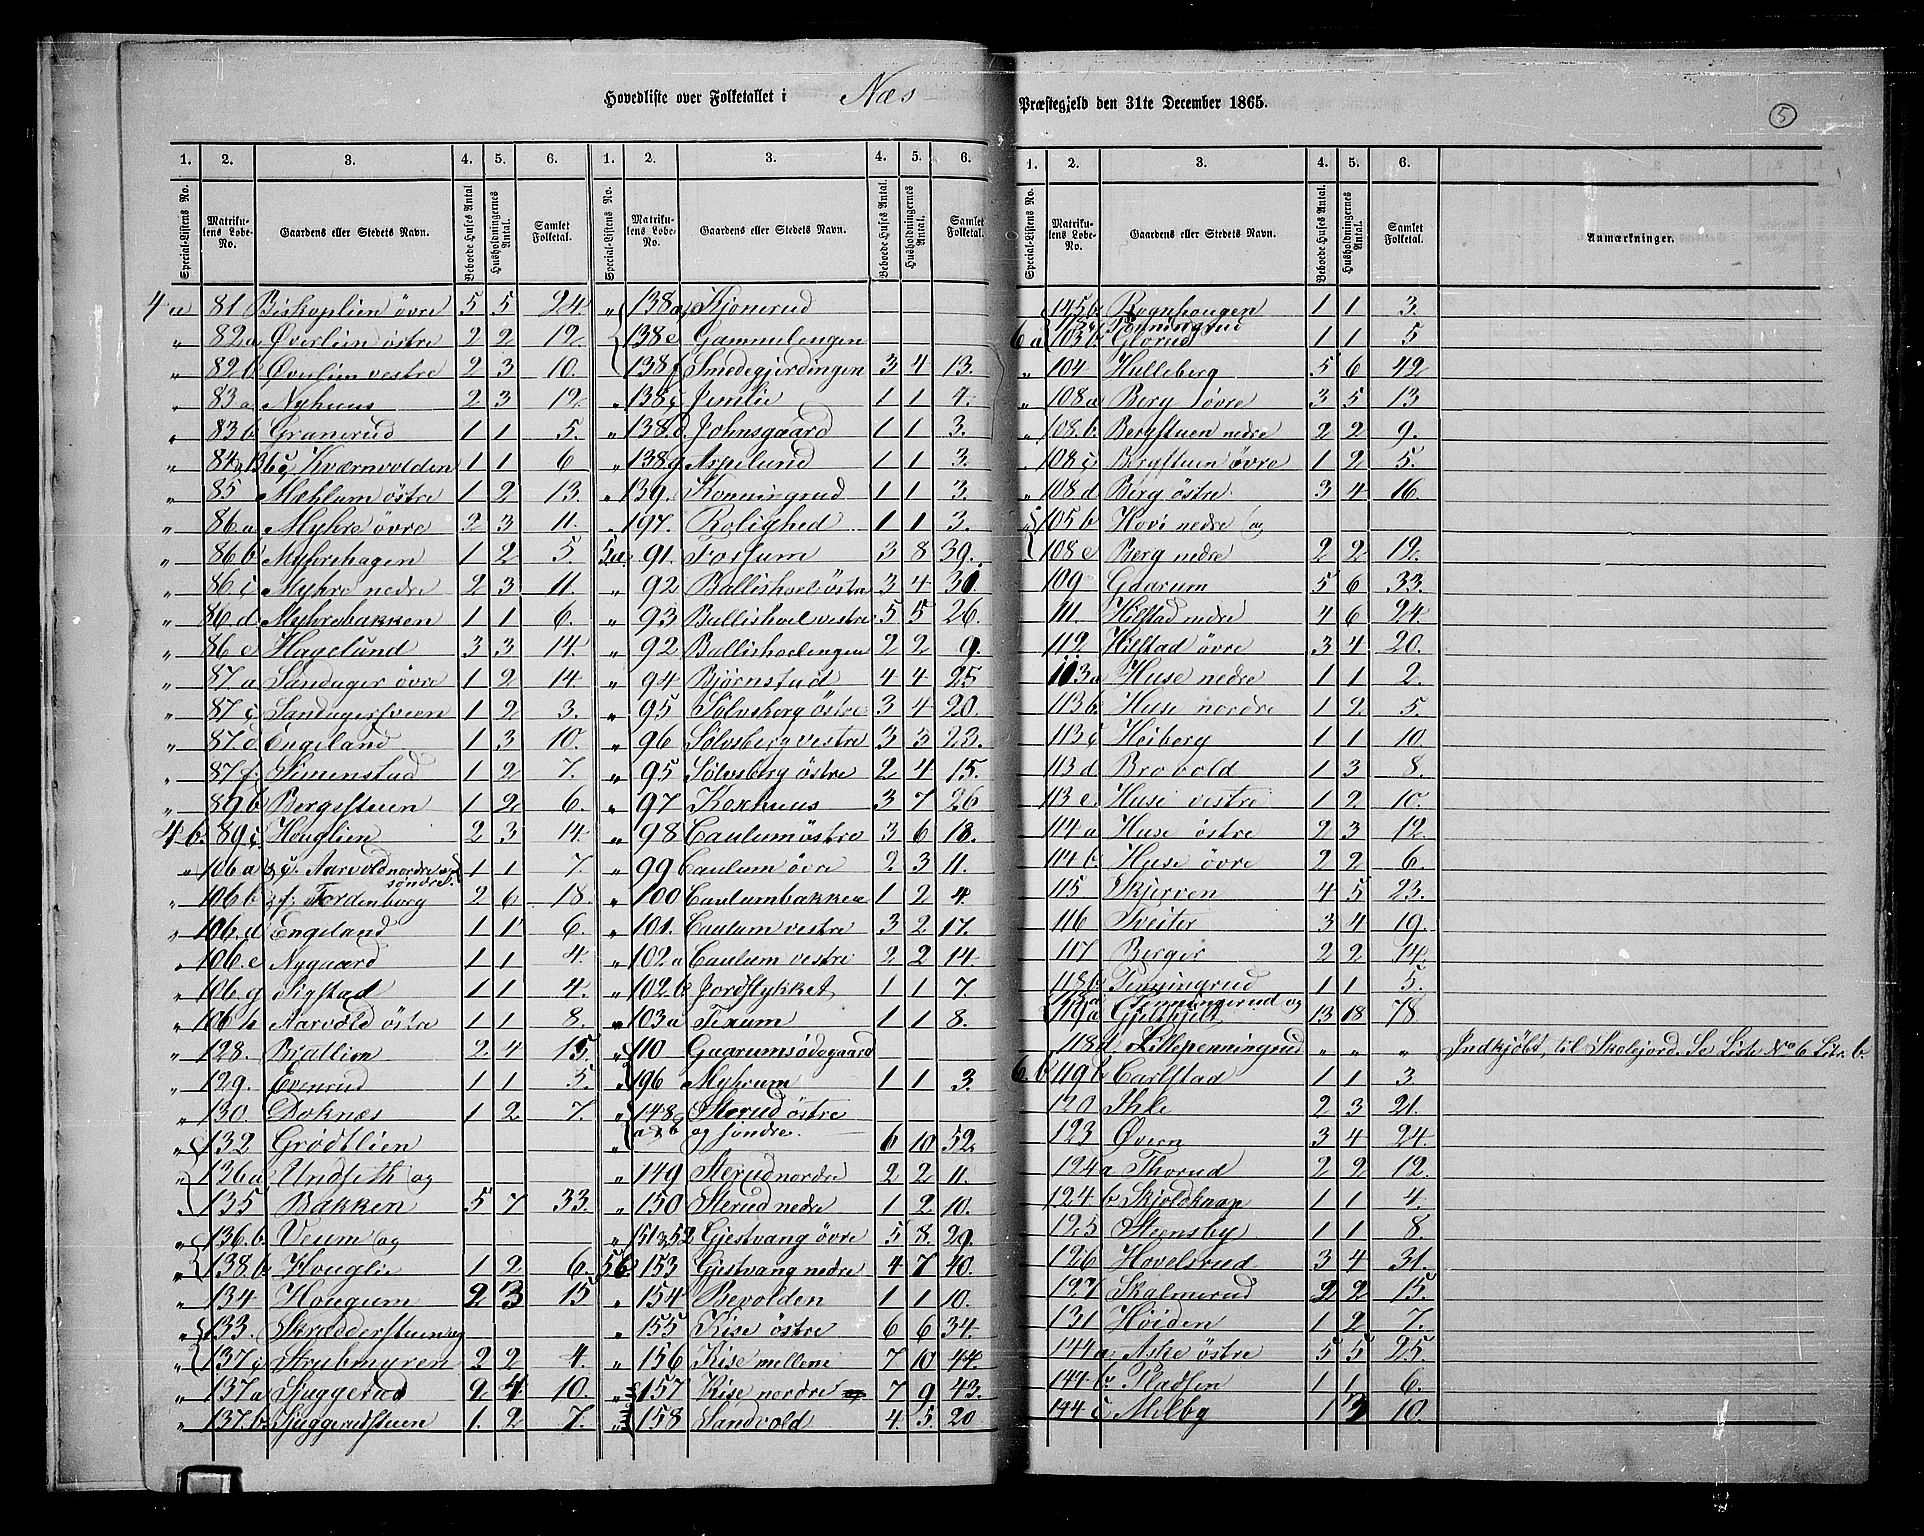 Hovedliste over Folketallet i Næs Præstegjeld den 31te December 1865.
5
1. 2. 3. 4. 5. 6.
Special-Listens No. Matrikulens Løbe-No. Gaardens eller Stedets Navn. Beboede Huses Antal Husholdningernes Antal. Samlet Folketal.
4 a 81 Biskoplien øvre 5 5 24.
" 82a Øverlien østre 2 2 12.
" 82b Øverlien vestre 2 3 10.
" 83a Nyhuus 2 3 12.
" 83b Granerud 1 1 5.
" 84 & 136c Kværnvolden 1 1 6
" 85 Mæhlum østre 1 2 13.
" 86a Myhre øvre 2 3 11.
" 86b Myhrehagen 1 2 5.
" 86c Myhre nedre 2 3 11.
" 86d Myhrebakken 1 1 6.
" 86e Hagelund 3 3 14.
" 87a Sandager øvre 1 2 14
" 87c Sandagersveen 1 2 3.
" 87d Engeland 1 3 10.
" 87f Simenstad 1 2 7.
" 89b Bergestuen 1 2 6.
4 b. 89c Houglien 2 3 14.
" 106a & c. Aarvold nordre og søndre. 1 1 7.
" 106b & f. Tordenborg 2 6 18.
" 106.d Engeland 1 1 6.
" 106.e Nygaard 1 1 4.
" 106.g Sigstad 1 1 4.
" 106h Aarvold østre 1 1 8.
" 128. Bratlien 2 4 15.
" 129. Evenrud 1 1 5.
" 130. Doknæs 1 2 7.
132 Grødtlien
" 136a Undseth og
135 Bakken 5 7 33.
136.b Veum og
" 138.b Houglie 1 2 6.
" 134 Hougum 2 3 15
" 133. Skrædderstuen og
137c Strubmyren 2 2 4.
" 137a Skuggerud 2 4 10.
" 137.b Skuggerudstuen 1. 2 7.
1. 2. 3. 4. 5. 6.
Special-Listens No. Matrikulens Løbe-No. Gaardens eller Stedets Navn. Beboede Huses Antal Husholdningernes Antal. Samlet Folketal.
" 138a Kjonerud
138e Gammelengen
138f Smedegjerdingen 3 4 13.
" 138c Jenlie 1 1 4.
" 138.d Johnsgaard 1 1 3.
" 138g Aspelund 1 1 3.
" 139. Konningrud 1 1 3.
" 197. Rolighed 1 1 3.
5a 91. Fossum 3 8 39.
" 92 Ballishoel østre 3 4 31
" 93 Ballishoel vestre 5 5 26.
" 92 Ballishoelengen 2 2 9.
" 94 Bjørnstad 4 4 25
" 95 Sølvsberg østre 3 4 20.
" 96 Sølvsberg vestre 3 3 23.
" 95 Sølvsberg østre 2 4 15.
" 97 Koxhuus 3 7 26
" 98 Caulum østre 3 6 18.
" 99 Caulum øvre 2 3 11.
" 100 Caulumbakken 1 2 4.
" 101. Caulum vestre 3 2 17.
" 102a Caulum vestre 2 2 14
" 102b Jordstykket 1 1 7.
" 103a Texum 1 1 8.
" 110 Gaarumsødegaard
196 Myhrum 1 1 3.
" 148 a & b Sterud østre
og søndre. 6 10 52.
" 149 Sterud nordre 2 2 11.
" 150 Sterud nedre 1 2 10.
" 151 & 52 Gjestvang øvre 5 8. 29.
5b. 153 Gjestvang nedre 4 7 40.
" 154 Bevolden 1 1 10.
" 155 Kise østre 6 6 34.
" 156 Kise mellem 7 10 44.
" 157 Kise nordre 7 9 43.
" 158 Sandvold 4. 5. 20
1. 2. 3. 4. 5. 6.
Special-Listens No. Matrikulens Løbe-No. Gaardens eller Stedets Navn. Beboede Huses Antal. Husholdningernes Antal. Samlet Folketal. Anmærkninger.
145b Rognhougen 1 1 3.
6 a 103b Glorud 1 1 5
" 104 Hulleberg 5 6 42
" 108a Berg øvre 3 5 13
" 108.b. Bergstuen nedre 2 2 9.
" 108c Bergstuen øvre 1 2 5.
" 108d Berg østre 3 4 16.
" 105b Hovi nedre og
108e Berg nedre 2 2 12.
109 Gaarum 5 6 33.
111. Hilstad nedre 4 6 24.
112 Hilstad øvre 3 4 20.
113a Huse nedre 1 1 2.
113b. Huse nordre 1 2 5.
113c Heiberg 1 1 10.
113d Brovold 1 3 8.
113e. Huse vestre 1 2 10.
114a Huse østre 2 3 12.
114b. Huse øvre 2 2 6.
115 Skjerven 4 5 23.
116 Tveiter 3 4 19.
117 Berger 2 2 14.
118b Penningrud 1 1 5.
118a Penningerud og
119a 13 18 78
118d Lillepenningrud " " " Indkjöbt til Skolejord. Se Liste No 6 Litr. b.
6.b 119b Carlstad 1 1 3.
120 Ihle 2 3 21.
123 Øvern 3 4 24.
124a Thorud 2 2 12.
124b Skjoldknap 1 1 4.
125 Steensby 1 1 8.
126 Hovelsrud 3 4 31.
127 Skalmerud 2 2 15.
131 Høiden 1 2 7.
144a Aske østre 5 5 25.
144b. Pladsen 1 1 6.
144c Milby 1 3 10.